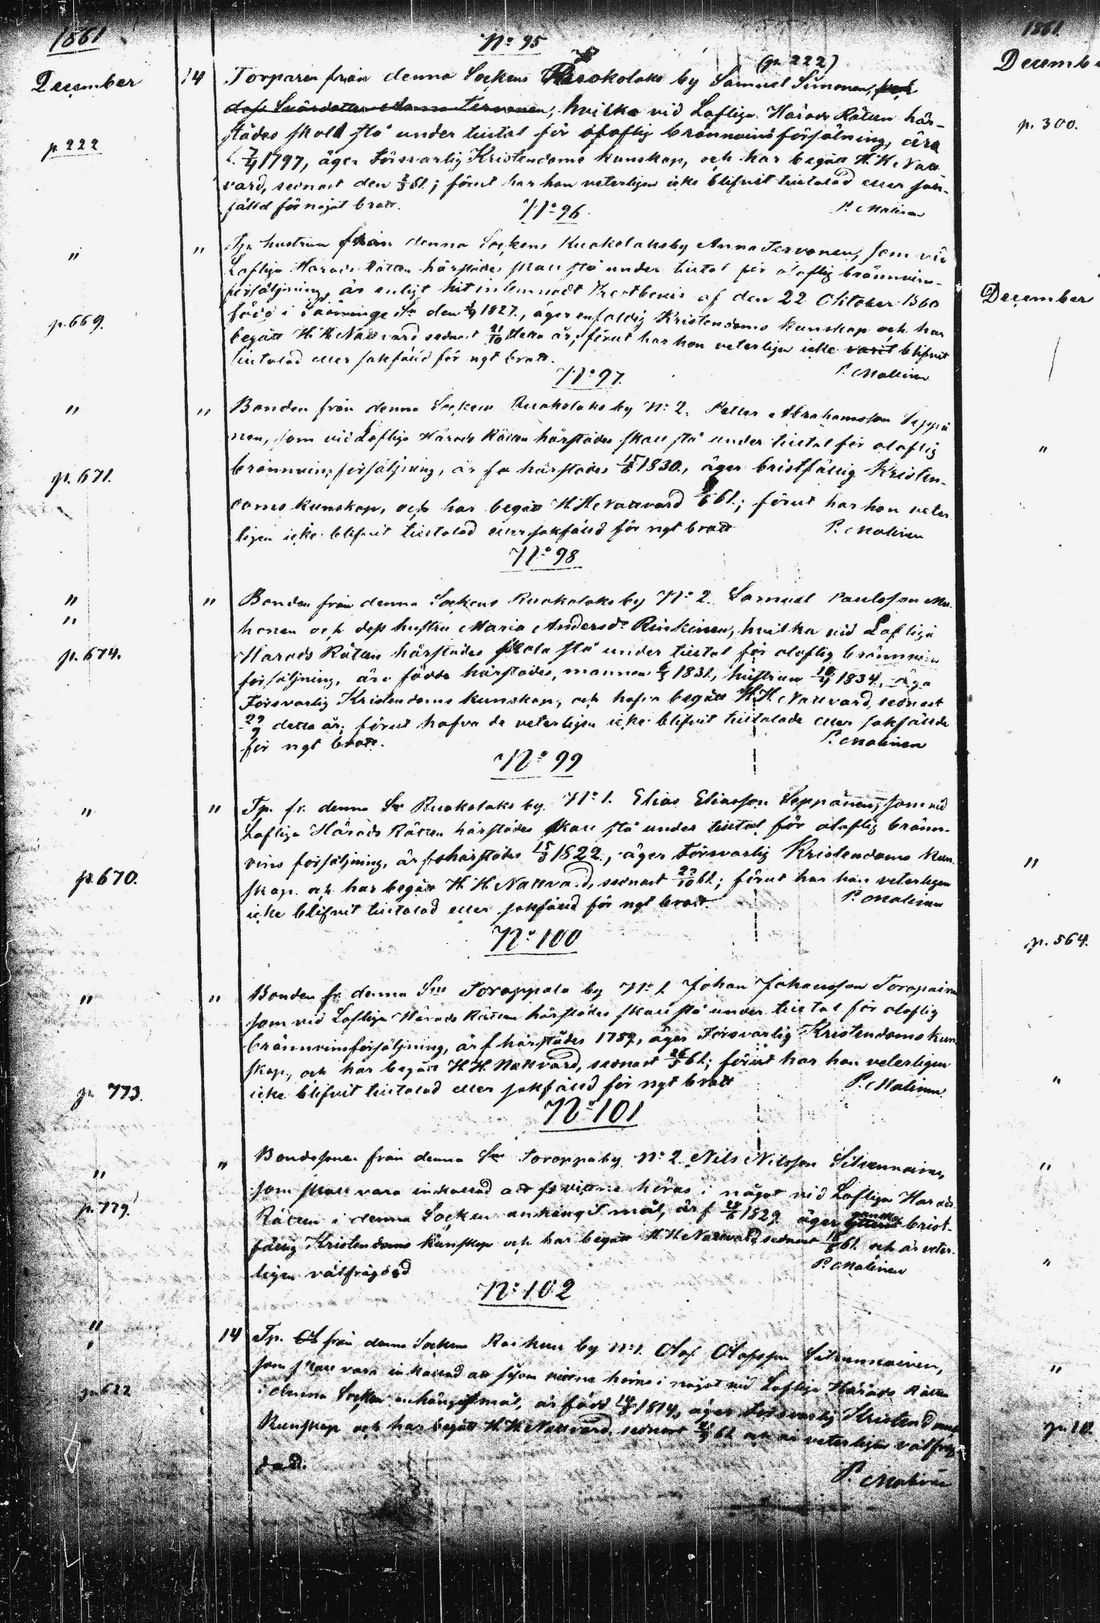 1861
December
p 222
"
p. 669.
"
p. 671.
"
"
p. 674.
"
p. 670.
"
p. 773.
"
p. 779.
"
p. 622
No 95
(p. 222)
14 Torparen från denna Sockens Ruokolaks by Samuel Simonen,
hvilka vid Loflige Härads Rätten här-
städes skola stå under tiltal för olaflig brännvinsförsälning, äro
1797, äger försvarlig Kristendoms kunskap, och har begått H. H. Natt-
vard, sednast den 61; förut har han veterligen icke blifvit tilltalad eller sak-
fälld för något brott. P. Malinen
No 96.
" hustrun från denna Sockens Ruokolaks by Anna Tervonen, som vid
Lofliga Härads Rätten härstädes skall stå under tiltal för olaflig brännvins-
försäljning, är enligt hit inlemnadt Prestbevis af den 22 Oktober 1860
född i den 1827., äger enfaldig Kristendoms kunskap och har
begått H. H. Nattvard sednast detta år, förut har hon veterligen icke blifvit
tilltalad eller sakfälld för ngt brott. P. Malinen
No 97.
" Bonden från denna Sockens Ruokolaks by No 2. Petter Abrahamsson Seppä
nen, som vid Lofliga Härads Rätten härstädes skall stå under tiltal för olaflig
brännvins försäljning, är fo härstädes 1830., äger bristfällig Kristen-
doms kunskap, och har begått H. H. Nattvard 61.; förut har han veter
ligen icke blifvit tilltalad eller sakfälld för ngt brott P. Malinen
No 98
" Bonden från denna Sockens Ruokolaks by No 2. Samuel Paulsson
honen och dess hustru Maria Andersdr Rinkinen, hvilka vid Lofliga
Härads Rätten härstädes skola stå under tiltal för olaflig brännvins
försäljning, äro födde härstädes, mannen 1831, hustrun 1834. äga
Försvarlig Kristendoms kunskap, och hafva begått H. H. Nattvard, sednast
detta år; förut hafva de veterligen icke blifvit tilltalade eller sakfällde
för ngt brott. P. Malinen
No 99
" Tp. fr. denna Sn Ruokolaks by. No 1. Elias Eliasson Seppänen, som vid
Lofliga Härads Rätten härstädes skall stå under tiltal för olaflig bränn-
vins försäljning, är fo härstädes 1822., äger försvarlig Kristendoms kun
skap. och har begått H. H. Nattvard, sednast 61.; förut har han veterligen
icke blifvit tilltalad eller sakfälld för ngt brott. P. Malinen
No 100
" Bonden fr denna Sns Toroppala by No 1. Johan Johansson Toropainen
som vid Lofliga Härads Rätten härstädes skall stå under tiltal för olaflig
brännvinsförsäljning, är f härstädes 1789, äger Försvarlig Kristendoms kun
skap, och har begått H. H. Nattvard, sednast 61.; förut har han veterligen
icke blifvit tilltalad eller sakfälld för ngt brott P. Malinen
No 101
" Bondesonen från denna Sn Toroppa by. No 2. Nils Nilsson
som skall vara inkallad att ss vittne höras i något vid Lofliga Härads
Rätten i denna Socken anhängit mål, är f 1829. äger ganska brist-
fällig Kristendoms kunskap och har begått H. H. Nattvard, sednast 61. och är veter-
ligen välfräjdad P. Malinen
No 102
14 Tp. från denna Sockens by No 1. Olof Olofsson
som skall vara inkallad att såsom vittne höras i något vid Lofliga Härads Rätten
i denna Socken anhängit mål, är född 1814, äger försvarlig Kristendoms
Kunskap och har begått H. H. Nattvard, sednast 61 och är veterligen välfräj-
dad. P. Malinen
1861
December
p. 300.
December
"
"
p. 564.
"
"
"
"